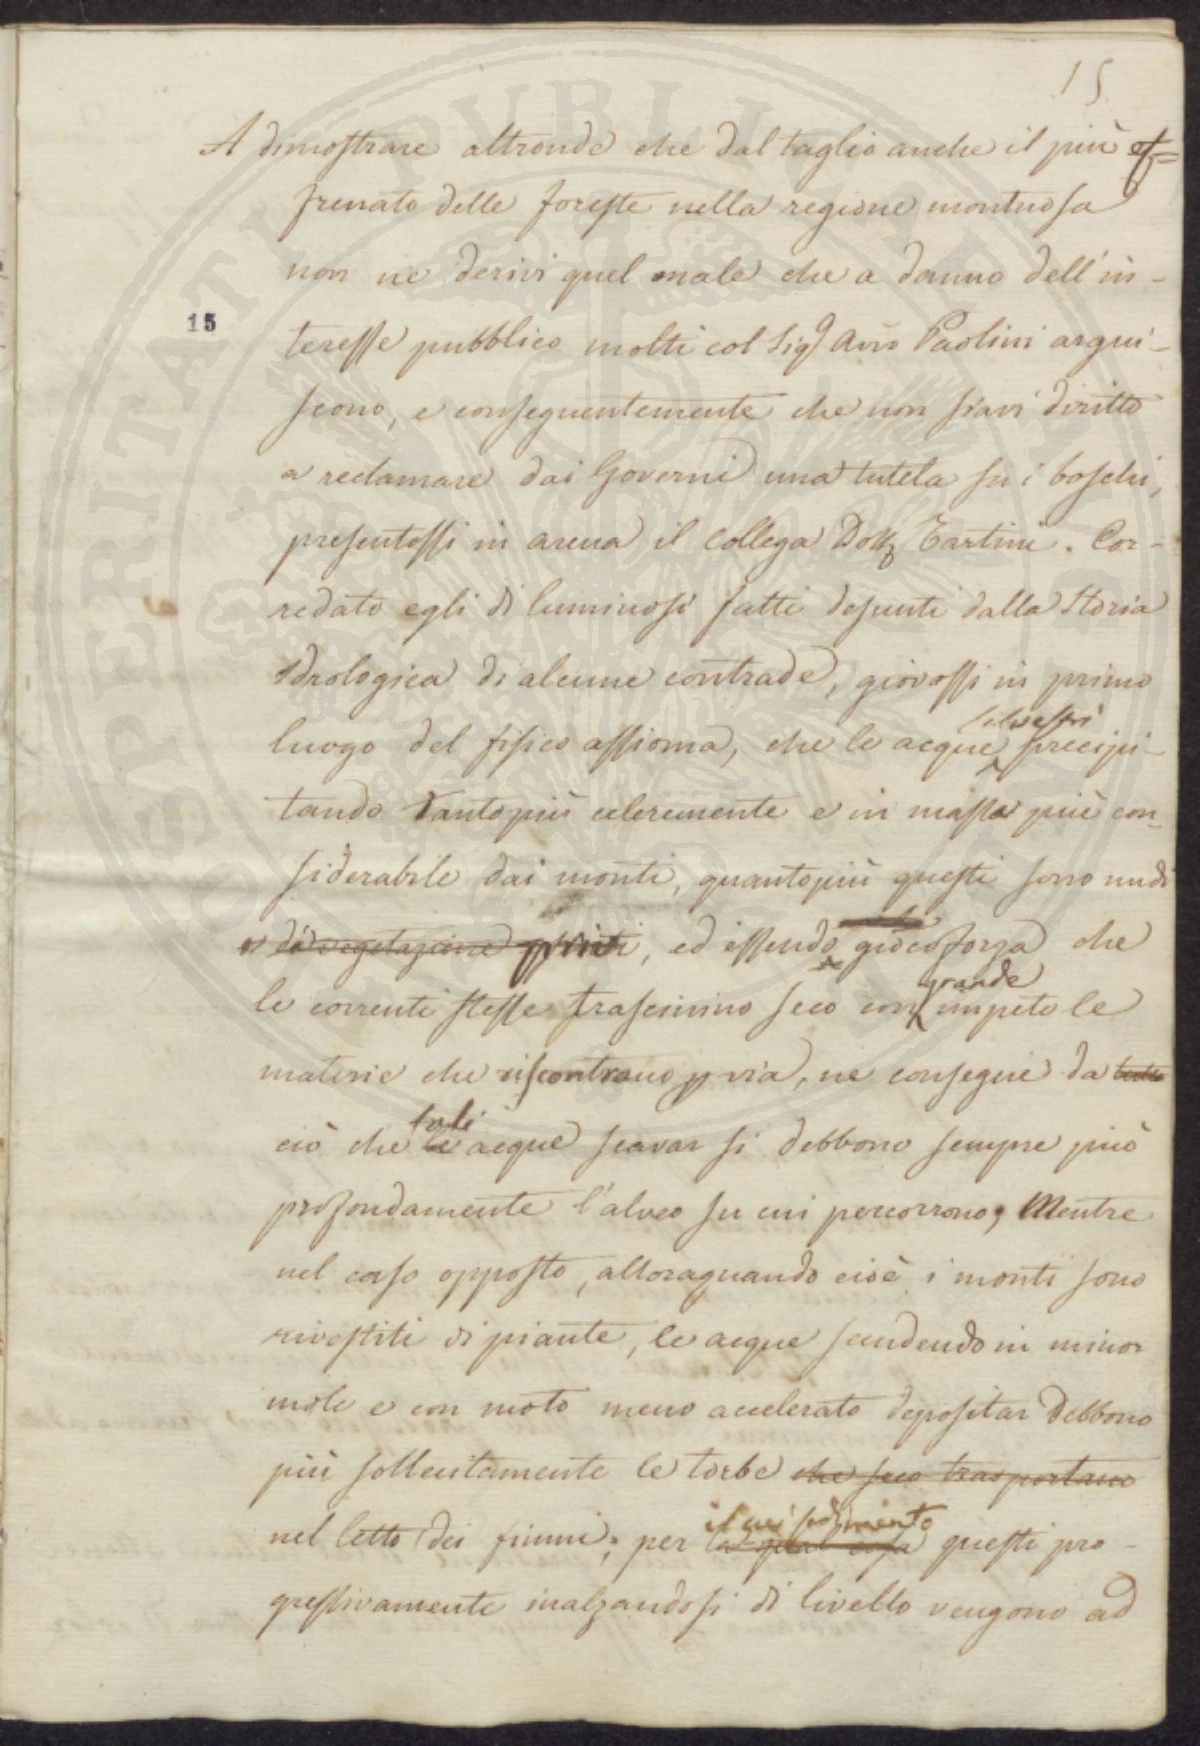 15
A dimostrare altronde che dal taglio anche il più ef=
frenato delle foreste nella regione montuosa
non ne derivi quel male che a danno dell'in-
15
teresse pubblico molti col Sig.r Avv.o Paolini argui-
scono, e conseguentemente che non siavi diritto
a reclamare dai Governi una tutela su i boschi,
presentossi in arena il Collega Dott. Tartini. Cor-
redato egli di luminosi fatti desunti dalla Storia
Idrologica di alcune contrade, giovossi in primo
silvestri
luogo del fisico assioma, che le acque precipi-
tando tantopiù celeremente e in massa più con-
siderabile dai monti, quantopiù questi sono nudi
di vegetazione, ed essendo giocoforza che
grande
le correnti stesse trascinino seco con impeto le
materie che riscontrano per via, ne consegue da tutto
tali
ciò che le acque scavar si debbono sempre più
profondamente l'alveo su cui percorrono; Mentre
nel caso opposto, alloraquando cioè i monti sono
rivestiti di piante, le acque scendendo in minor
mole e con moto meno accelerato depositar debbono
più sollecitamente le torbe che seco trasportano
il cui sedimento
nel letto dei fiumi; per la qual cosa questi pro-
gressivamente inalzandosi di livello vengono ad